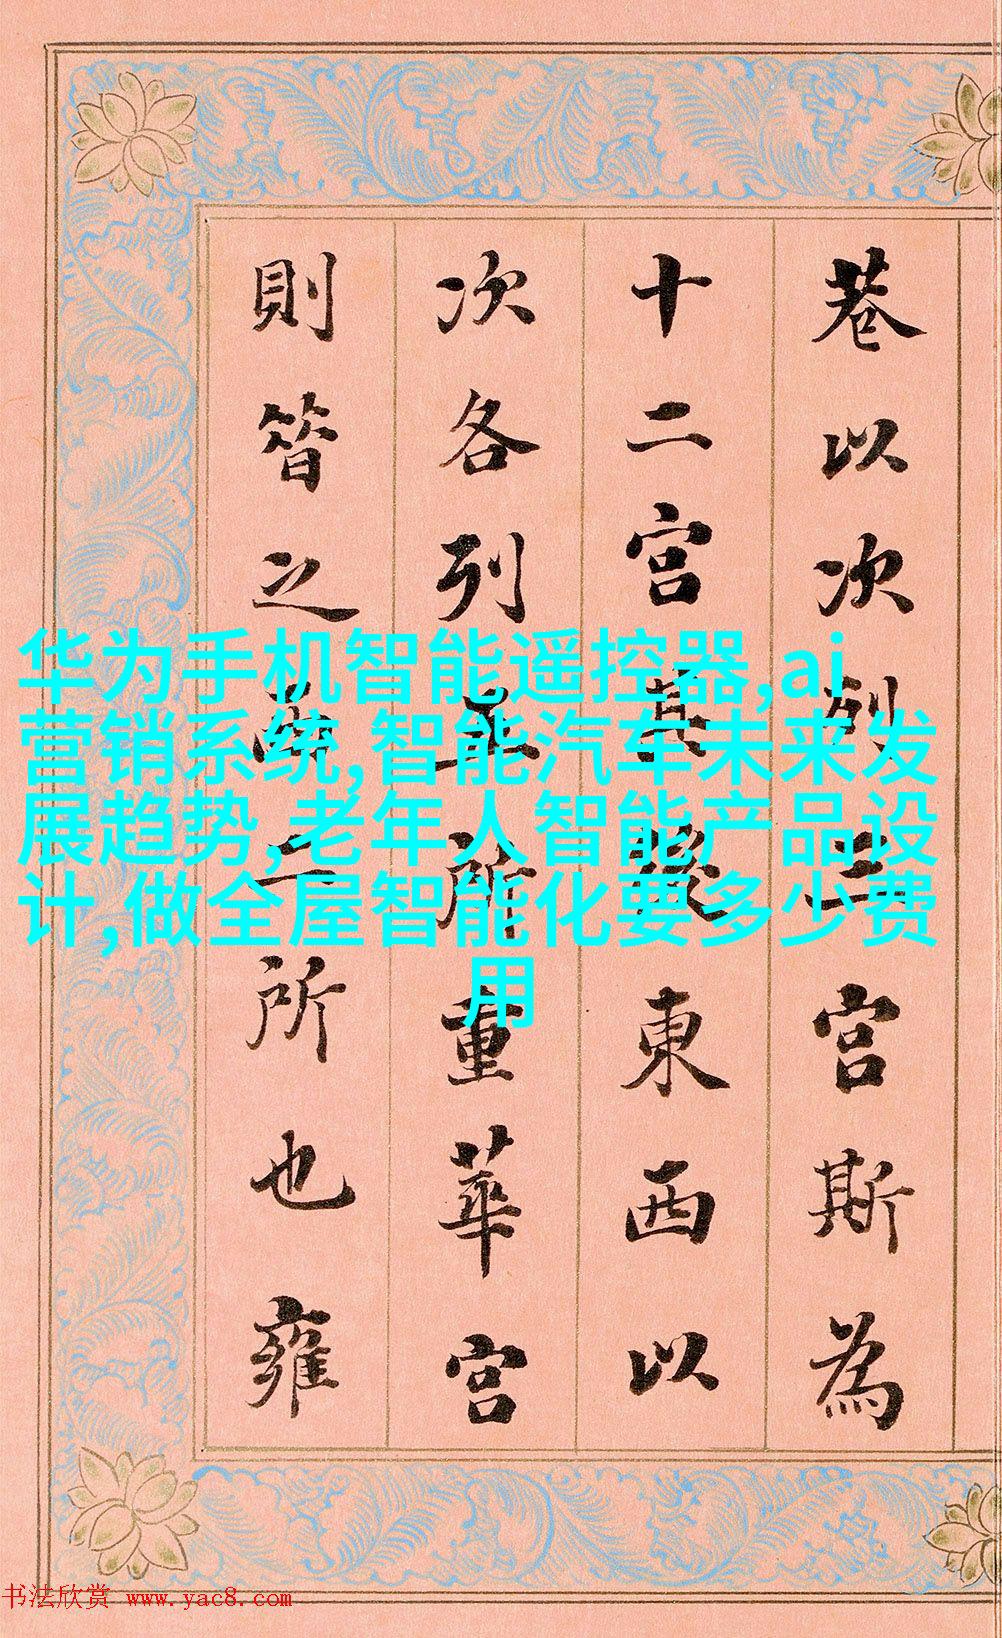 巷以次列三宫斯為
十二宫其後東西以
次各列五所重華宫
則昔之西二所也雍
华为手机智能遥控器,ai
营销系统,智能汽车未来发
展趋势,老年人智能产品设
计,做全屋智能化要多少费
用
书法欣赏 www.yac8.com